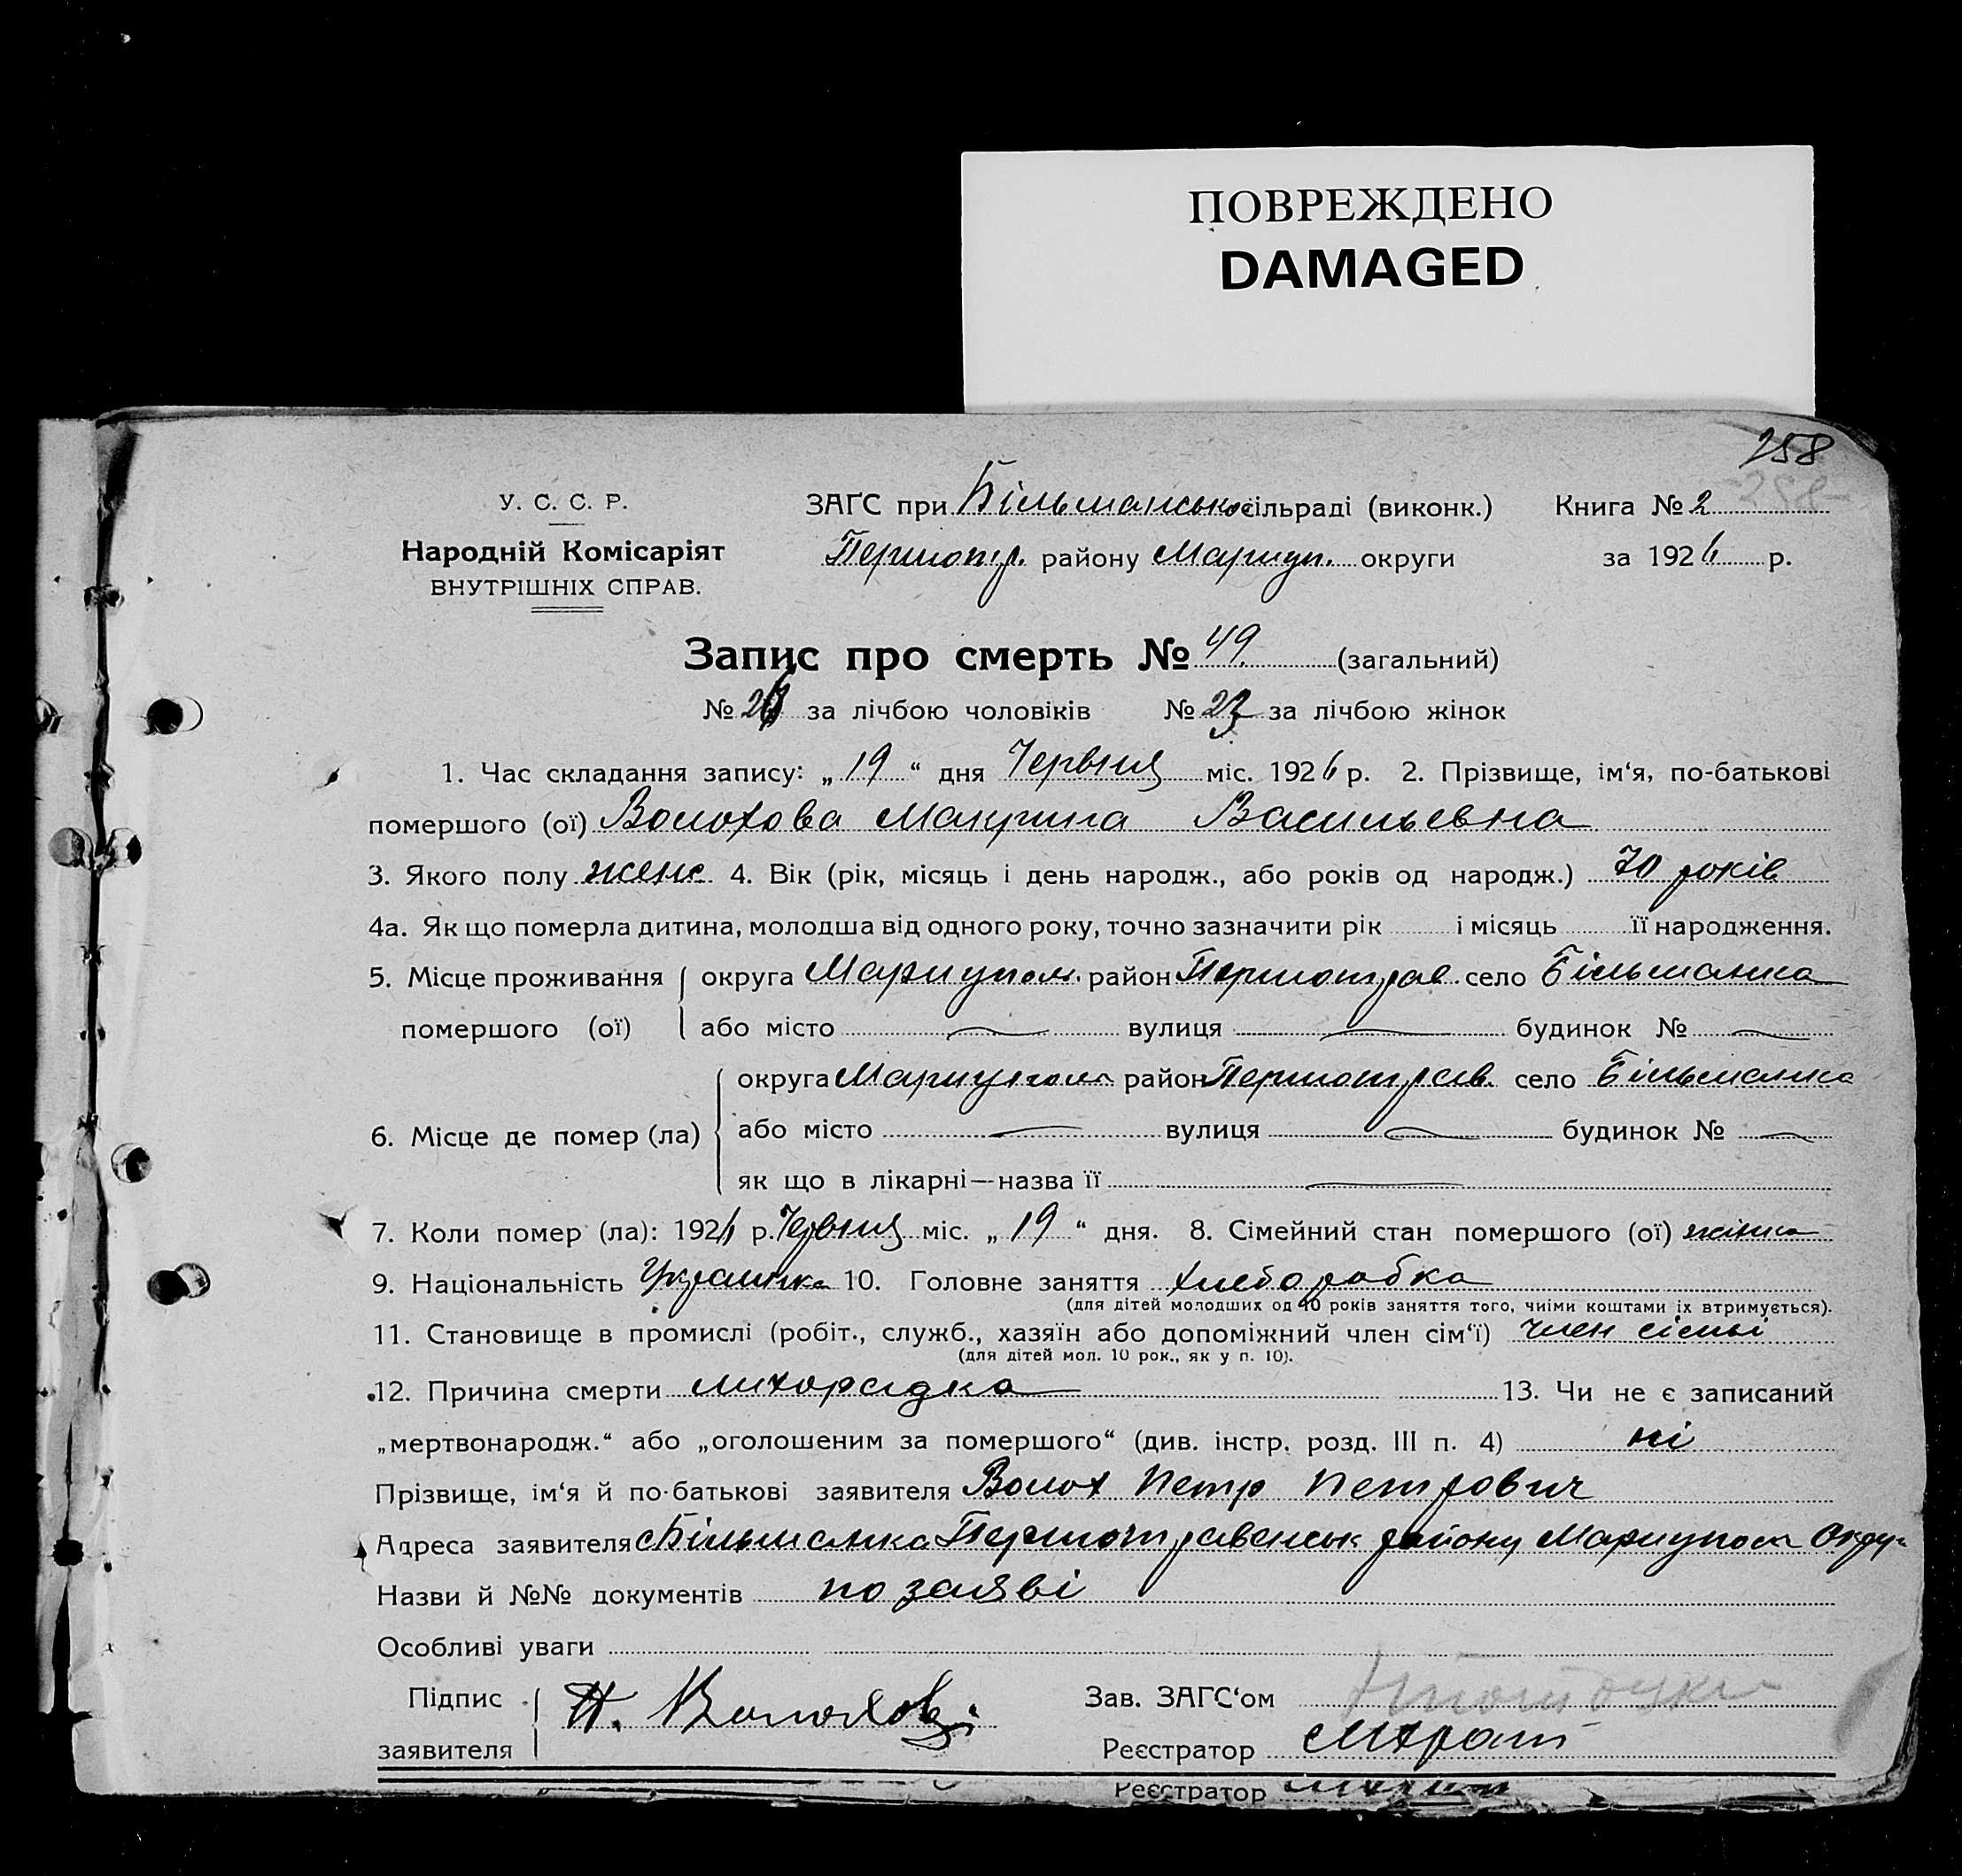 ПОВРЕЖДЕНО
DAMAGED
258
У. С. С. Р. ЗАГС при Більманськ. сільраді (виконк.) Книга № 2
258
Народній Комісаріят Першотр. району Мариуп. округи за 1926 р.
ВНУТРІШНІХ СПРАВ.
Запис про смерть № 49. (загальний)
№ 26 за лічбою чоловіків № 23 за лічбою жінок
1. Час складання запису: „19“ дня Червня міс. 1926 р. 2. Прізвище, ім‘я, по-батькові
помершого (ої) Волохова Макрина Васильевна
3. Якого полу женс. 4. Вік (рік, місяць і день народж., або років од народж.) 70 років
4а. Як що померла дитина, молодша від одного року, точно зазначити рік і місяць її народження.
5. Місце проживання округа Мариупол. район Першотрав. село Більманка
помершого (ої) або місто — вулиця — будинок № —
округа Мариупол район Першотрав. село Більманка
6. Місце де помер (ла) або місто — вулиця — будинок № —
як що в лікарні—назва її —
7. Коли помер (ла): 1926 р. Червня міс. „19“ дня. 8. Сімейний стан помершого (ої) жінка
9. Національність Украинка 10. Головне заняття хлеборобка
(для дітей молодших од 10 років заняття того, чиїми коштами їх втримується).
11. Становище в промислі (робіт., служб., хазяїн або допоміжний член сім‘ї) член сіємьі
(для дітей мол. 10 рок., як у п. 10).
12. Причина смерти лихорадка 13. Чи не є записаний
„мертвонародж.“ або „оголошеним за помершого“ (див. інстр. розд. III п. 4) ні
Прізвище, ім‘я й по-батькові заявителя Волох Петр Петрович
Адреса заявителя с Більманка Першотравенськ району Мариупол Округ
Назви й №№ документів по заяві
Особливі уваги
Підпис П. Волохов Зав. ЗАГС‘ом
заявителя Реєстратор
Реєстратор